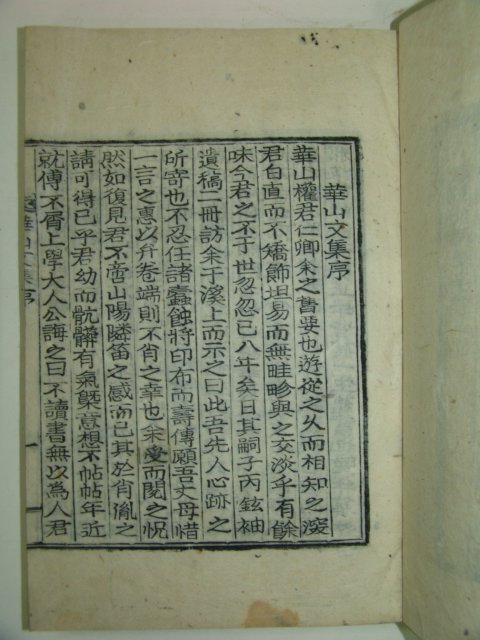 華山文集序
華山權君仁卿余之舊要也遊從之久而相知之深
君自直而不矯飾坦易而無畦畛與之交淡乎有餘
味今君之不于世忽忽已八年矣日其嗣子丙鉉袖
遺稿二冊訪余于溪上而示之曰此吾先人心跡之
所寄也不忍任諸蠹蝕將印布而壽傳願吾丈毋惜
一言之惠以弁卷端則不肖之幸也余受而閱之怳
然如復見君不啻山陽隣笛之感而已其於肖胤之
請可得已乎君幼而骯髒有氣槩意想不帖帖年近
就傅不屑上學大人公誨之曰不讀書無以為人君
華山文集序
一